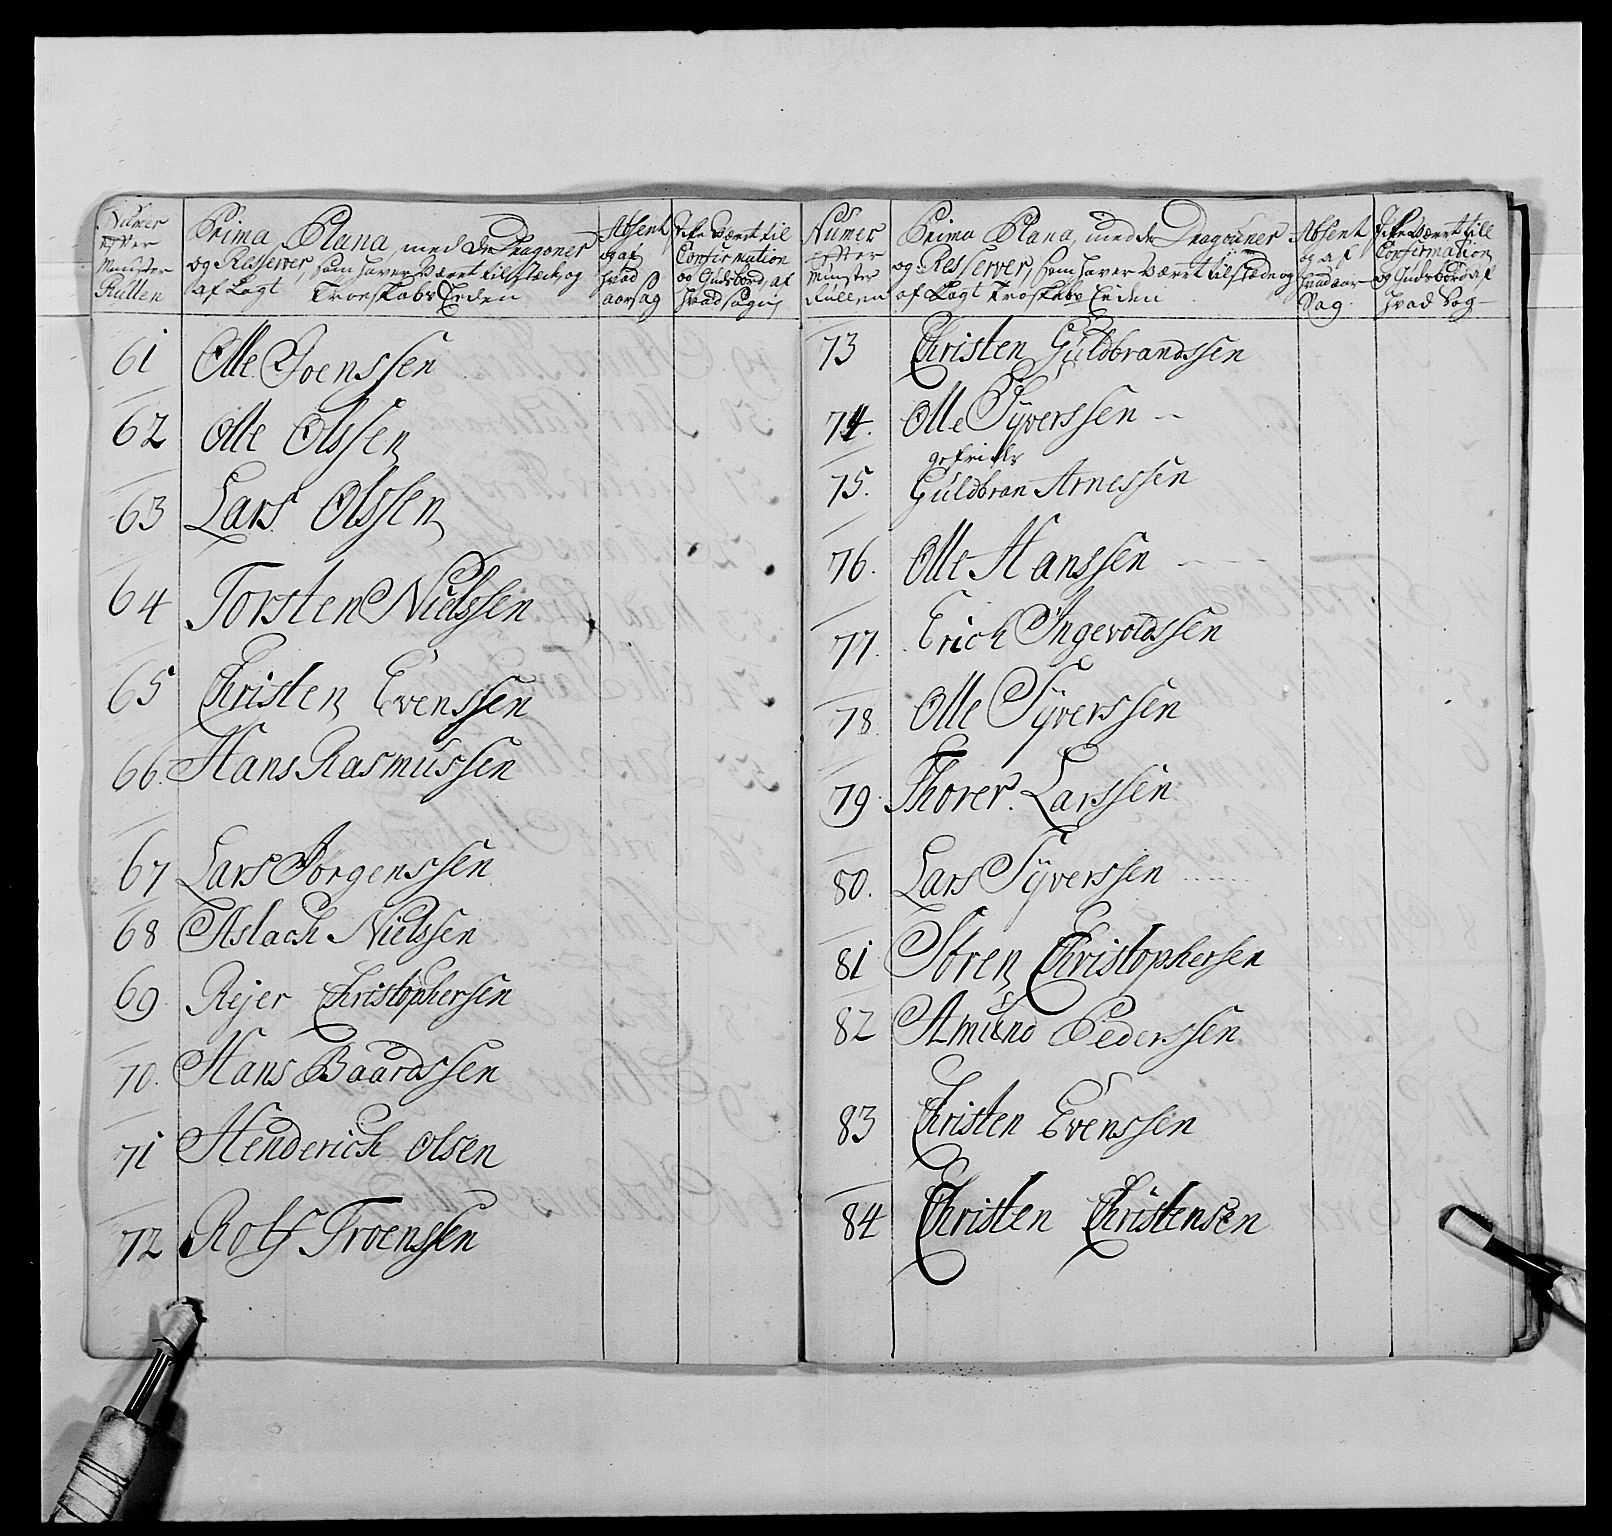 Numer
efter
Mynster
Rullen
Prima Plana, med de Dragoner
og Resserver, som haver Været tilstæde og
af Lagt Troeskabs Eeden
Absent
og af
hvad
aarsag
Icke Været til
Confirmation
og Gudsbord, af
hvad
61 Olle Joenssen
62 Olle Olssen
63 Lars Olssen
64 Torsten Nielssen
65 Christen Evenssen
66. Hans Rasmussen
67 Lars Jörgenssen
68 Aslach Nielssen
69 Rejer Christophersen
70. Hans Baardssen
71 Henderich Olsen
72 Rolf Troenssen
Numer
efter
Mynster
Rullen
Prima Plana, med de Dragouner
og Resserver, som haver Været tilstæde og
af Lagt Troskabs Eeden
Absent
og af
hvad aar
Sag
Icke Været till
Confirmation
og Gudsbord af
hvad Sag
73 Christen Guldbrandssen
74. Olle Syverssen
gefrider
75. Guldbran Arnessen
76. Olle Hanssen
77. Erich Ingevoldssen
78 Olle Syverssen
79 Thorer Larssen
80. Lars Syverssen
81 Sören Christophersen
82 Amund Pederssen
83 Christen Evenssen
84 Christen Christensen